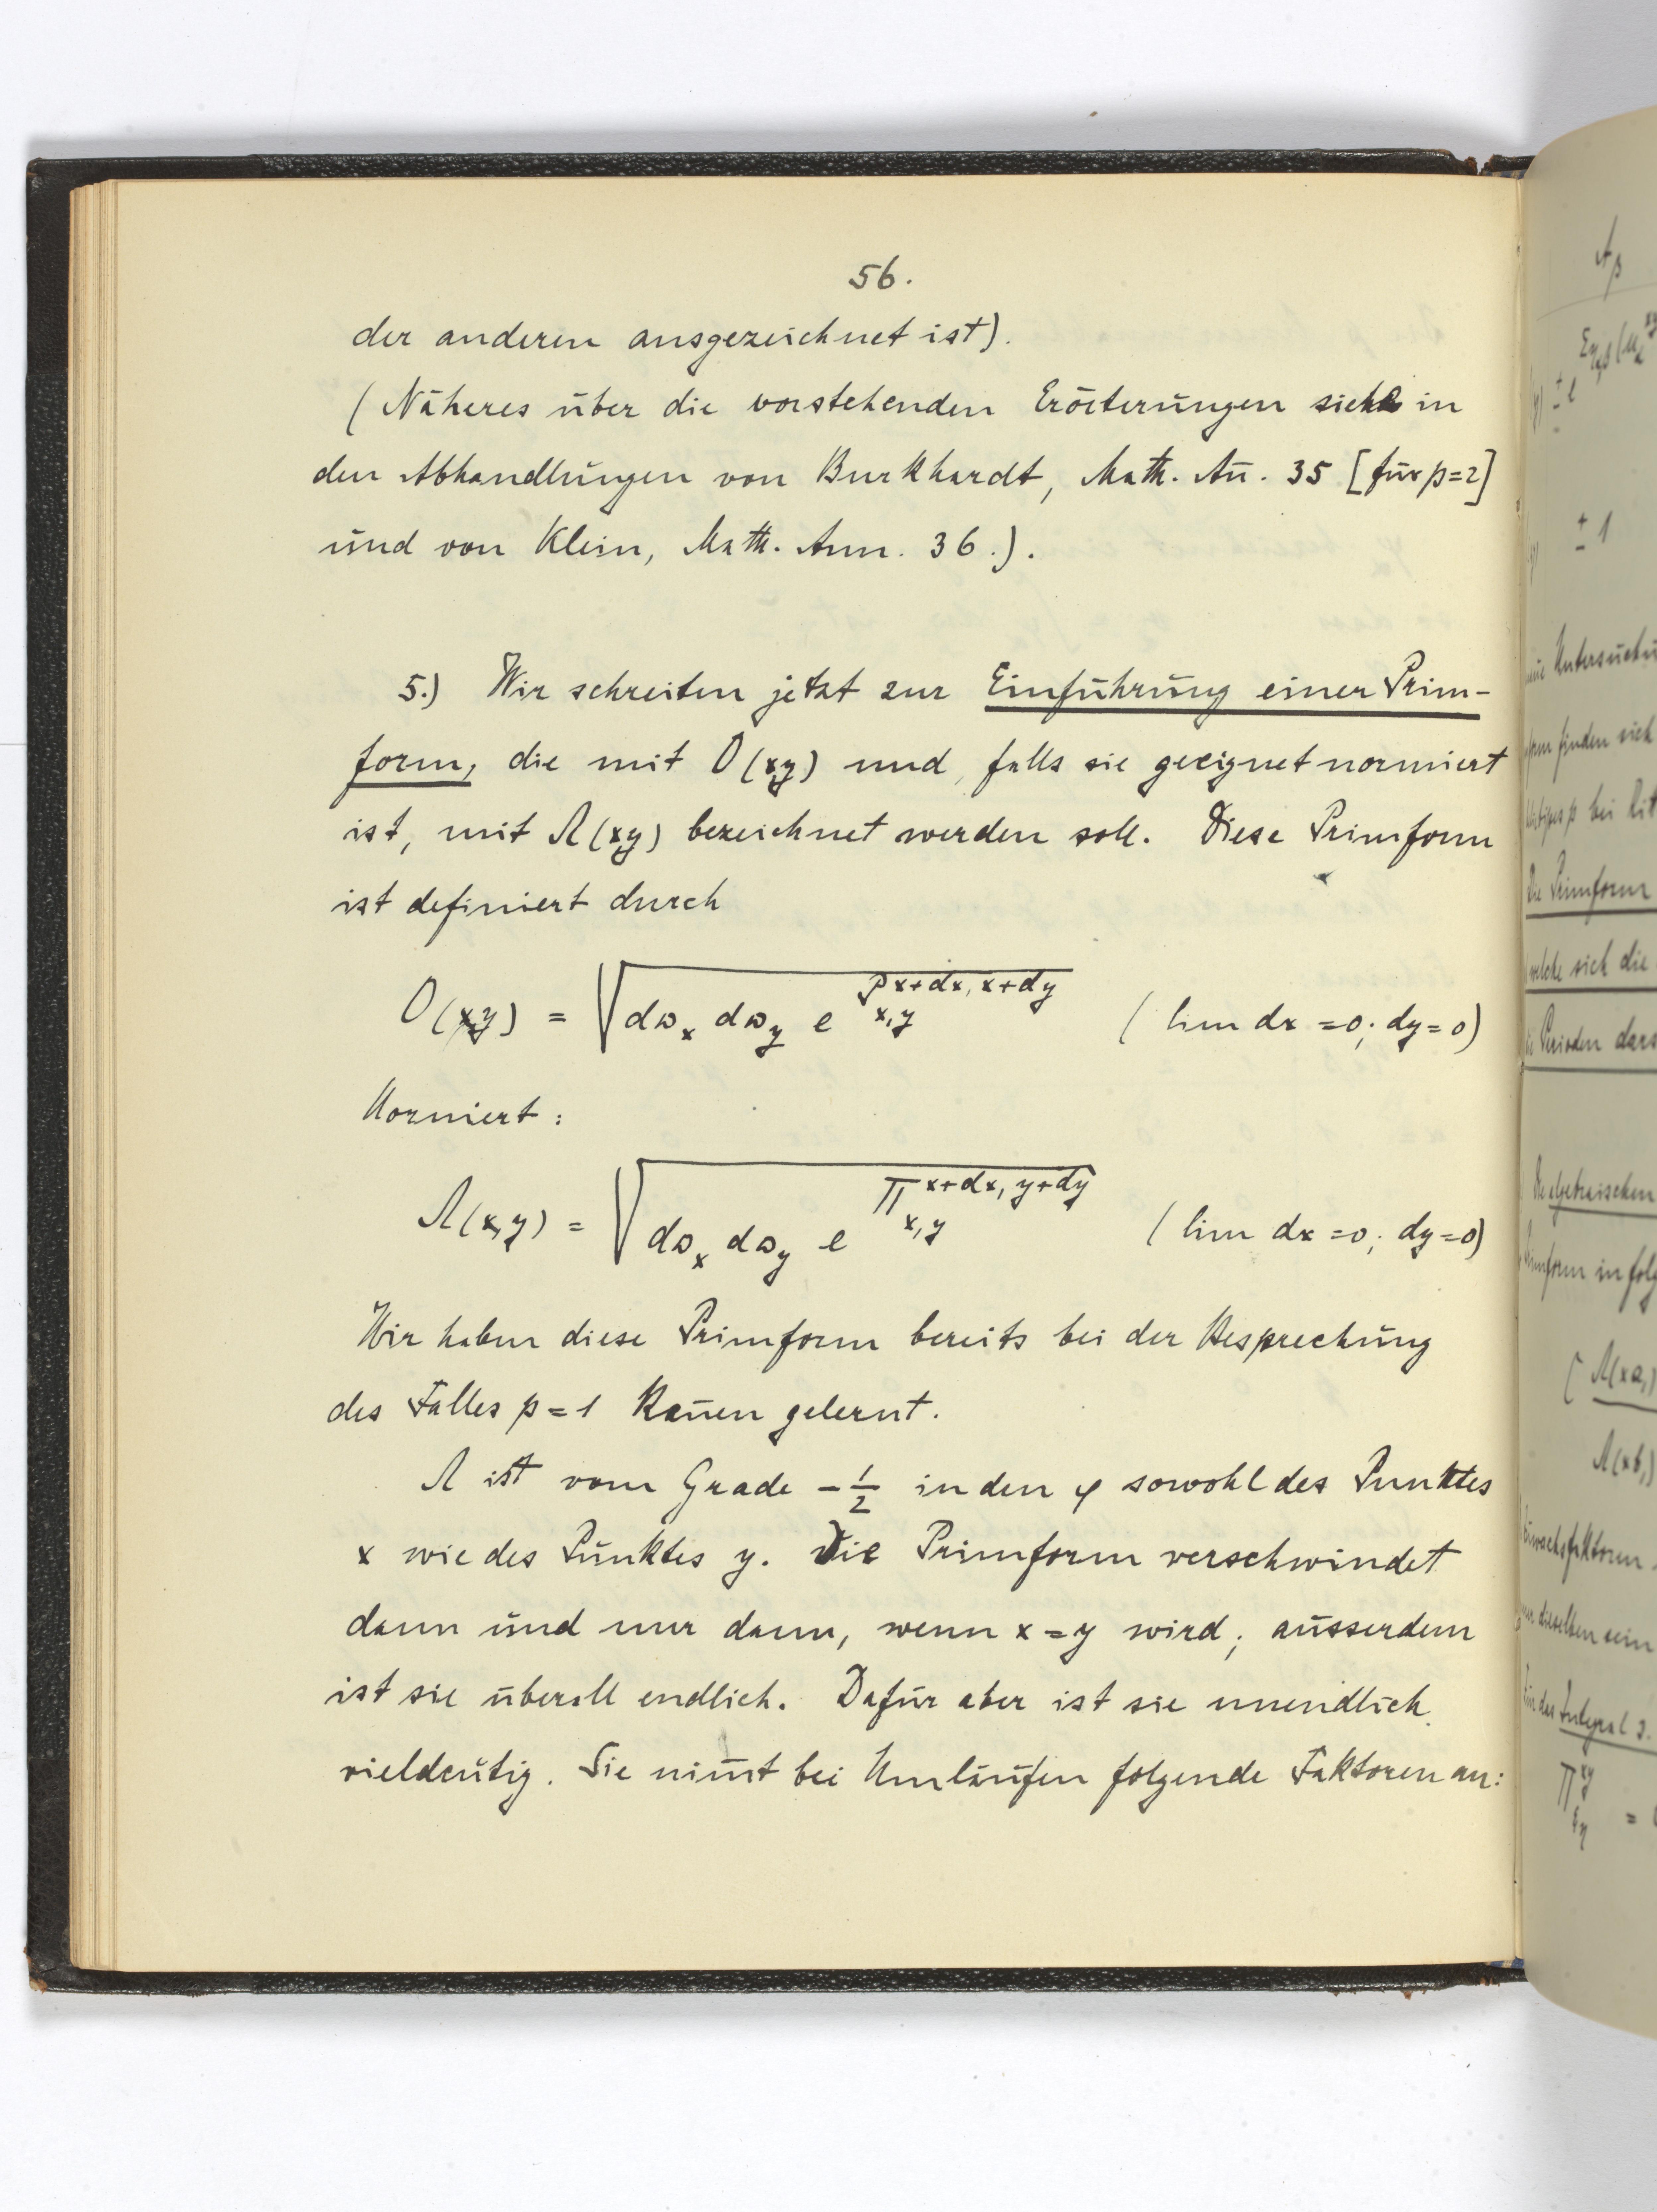 56.
der anderen ausgezeichnet ist).
(Näheres über die vorstehenden Erörterungen siehe in
den Abhandlungen von Burkhardt, Math. An̄. 35 [für p=2]
und von Klein, Math. Ann. 36.).
5.) Wir schreiten jetzt zur Einführung einer Prim-
form, die mit O(xy) und, falls sie geeignet normiert
ist, mit Λ(xy) bezeichnet werden soll. Diese Primform
ist definiert durch
O(x,y) = √(dω_x dω_y e^{P^{x+dx, x+dy}_{x,y}}) (lim dx=0; dy=0)
Normiert:
Λ(x,y) = √(dω_x dω_y e^{Π^{x+dx, y+dy}_{x,y}}) (lim dx=0; dy=0)
Wir haben diese Primform bereits bei der Besprechung
des Falles p=1 ken̄en gelernt.
Λ ist vom Grade -1/2 in den φ sowohl des Punktes
x wie des Punktes y. Die Primform verschwindet
dann und nur dann, wenn x=y wird; ausserdem
ist sie überall endlich. Dafür aber ist sie unendlich
vieldeutig. Sie nim̄t bei Umläufen folgende Faktoren an:
± 1
Untersuchu
form finden sich
p bei
Die Primform
welche sich die
Perioden dars
Die algebraischen
Primform in folg
Λ(xa,)
Λ(xb,)
dieselben sein
Für das Integral 3.
Π